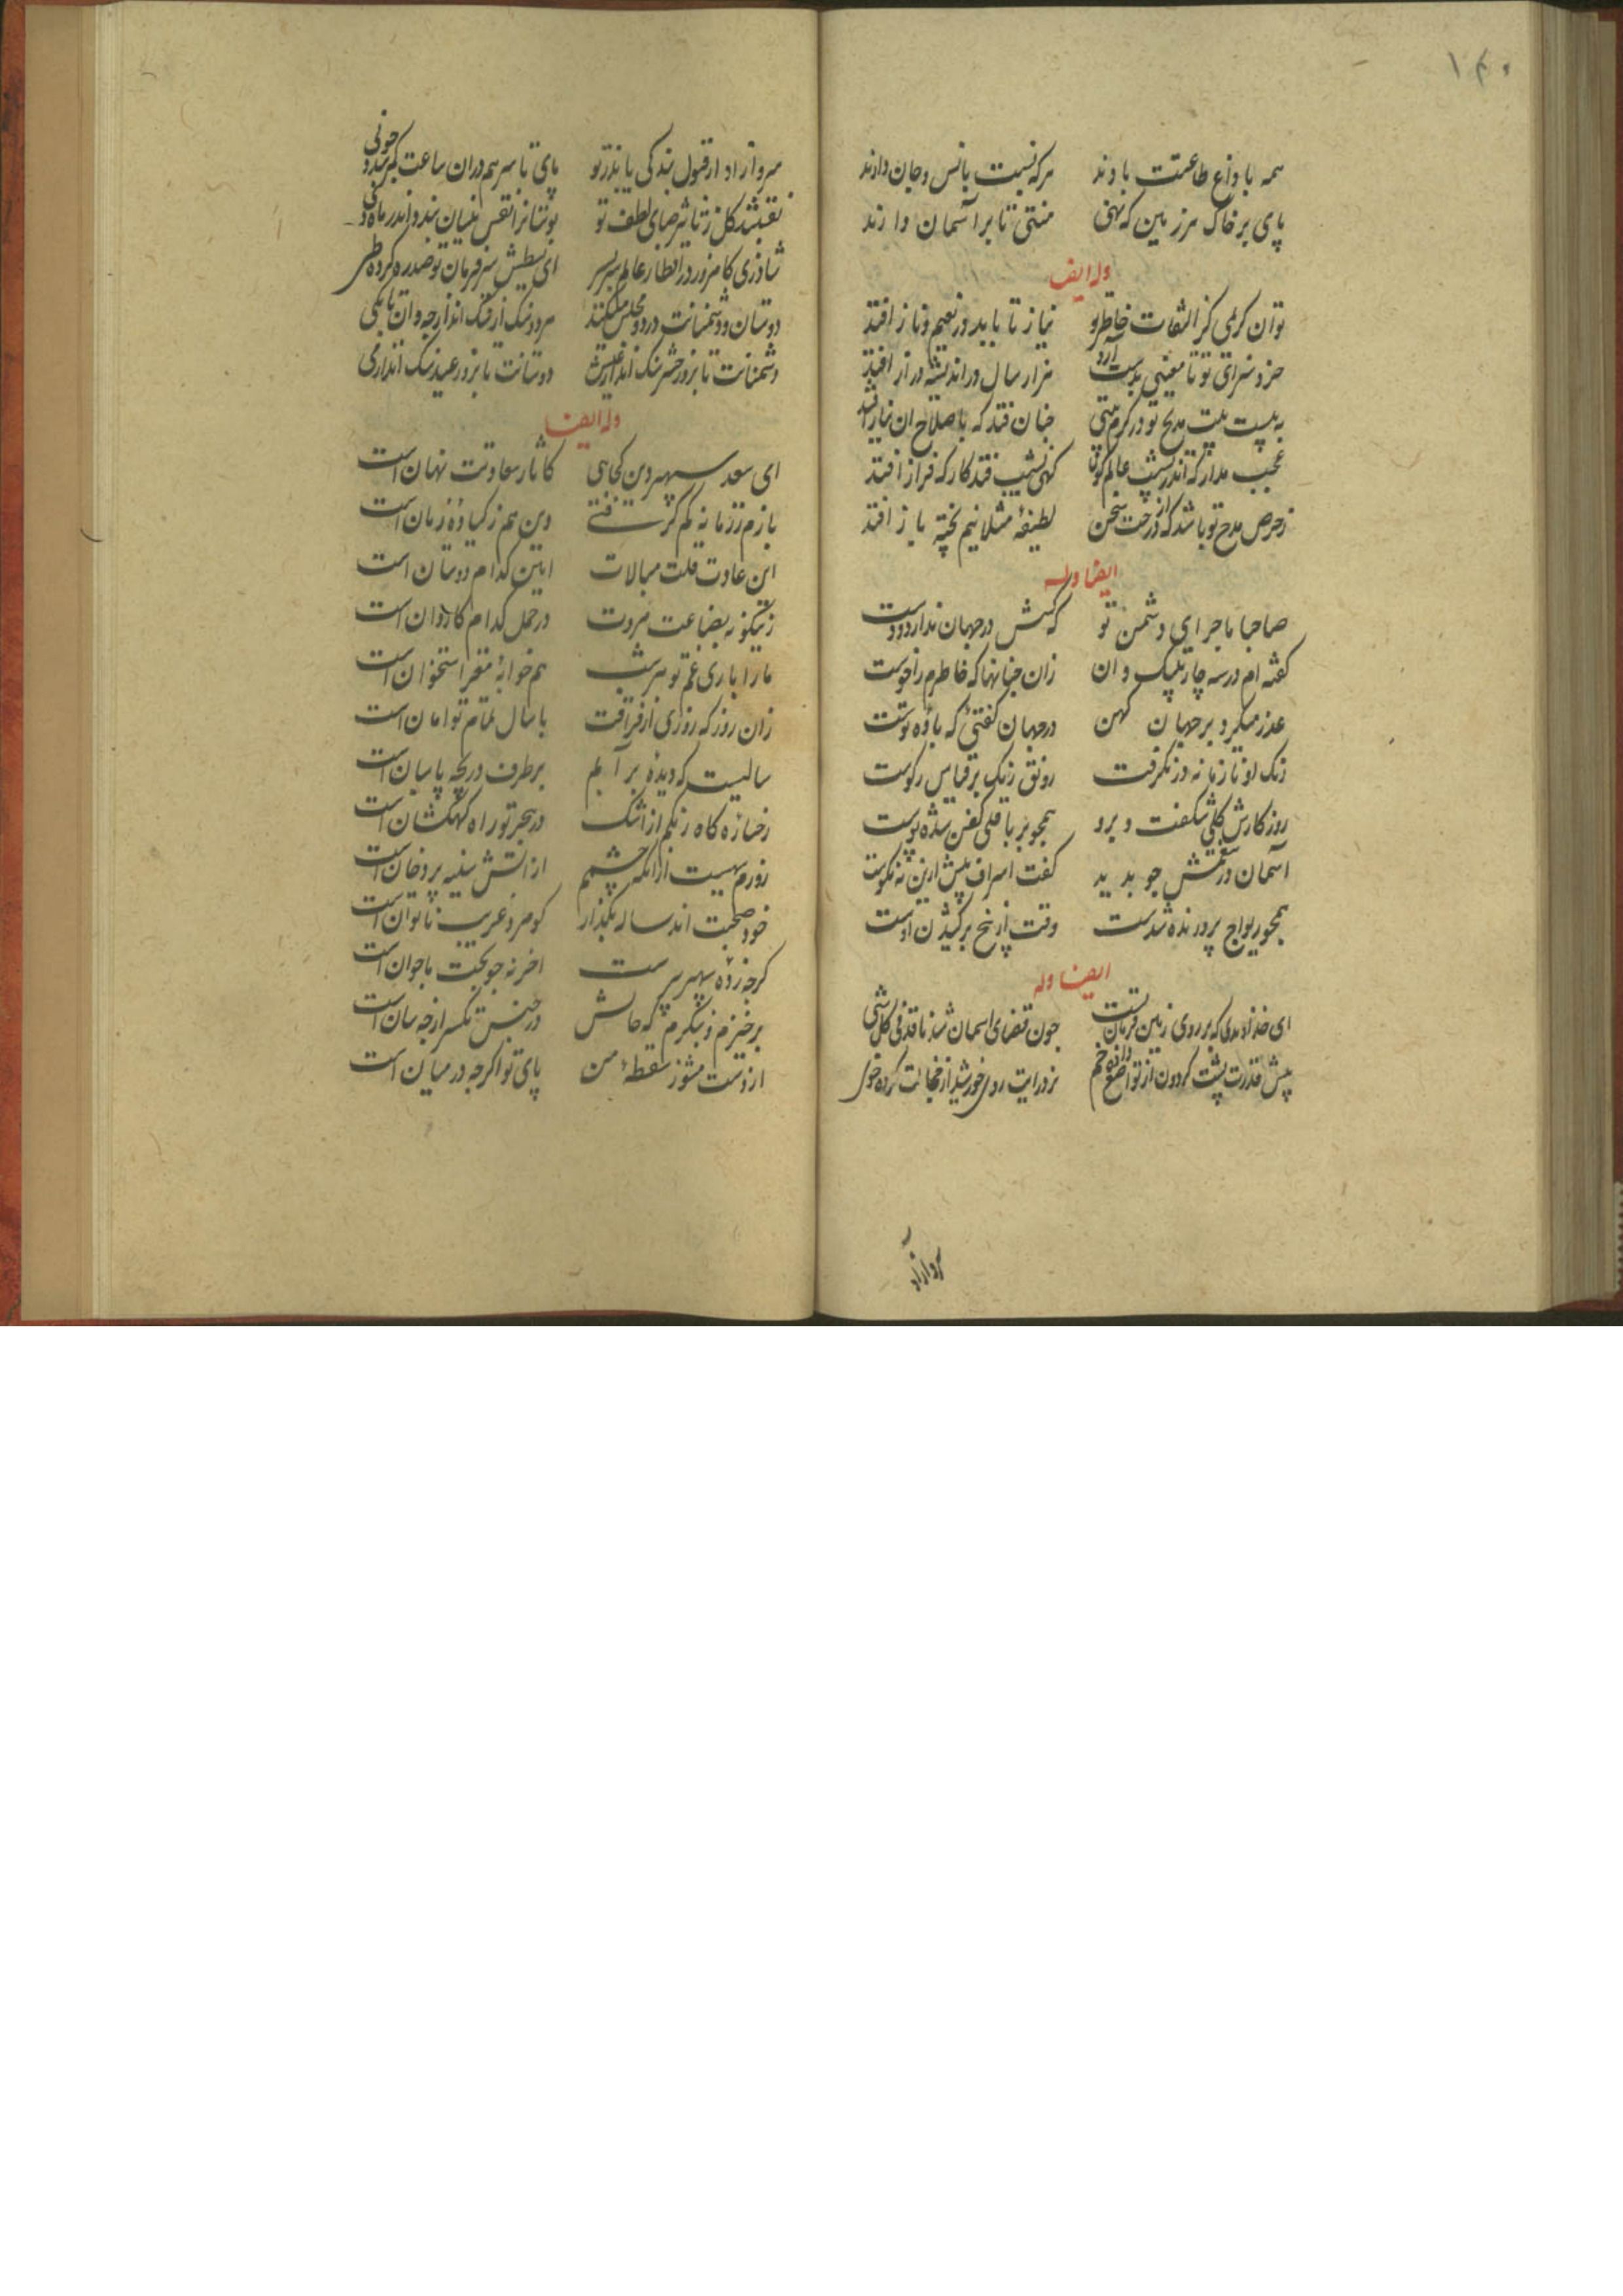 ۱۴۰
همه با داغ طاعتت بادند هرکه نسبت بانس و جان دارند
پای بر خاک هر زمین که نهی منتی تا بر آسمان دارند
وله ایضا
تو آن کریمی کز التفات خاطر تو نیاز تا بابد در نعیم و ناز افتد
خرد سزای تو تا معنیی بدست آرد هزار سال در اندیشه دراز افتد
به بیست بیت مدیح تو در کرم بیتی چنان فتد که باصلاح آن نیاز افتد
عجب مدار که اندر نشیب عالم کون گهی نشیب فتد کار که فراز افتد
ز حرص مدح تو باشد که از درخت سخن لطیفهٔ مثلا نیم پخته باز افتد
ایضا وله
صاحبا ماجرای دشمن تو که کسش در جهان ندارد دوست
گفته ام در سه چار بیتک و ان زان چنانها که خاطرم را خوست
عذر میکرد بر جهان کهن در جهان گفتی که باده توست
رنگ او تا زمانه در نگرفت رونق رنگ بر قیاس رکوست
روزکارش کلی شکفت و برو همچو بر باقلی کفن شده پوست
آسمان در تنعمش چو بدید کفت اسراف بیش ازین نه نکوست
همچو ریواج پرورنده شدست وقت از بیخ برکشیدن اوست
ایضا وله
ای خداوندی که بر روی زمین فرمانت چون قضای اسمان شد نافذ فی کل شی
پیش قدرت پشت کردون از تواضع داده خم نزد رایت روی خورشید از خجالت کرده خوی
سرو ازاد
سرو ازاد ار قبول بندکی یابد ز تو پای تا سر هم در ان ساعت کمر بندد چونی
نقشبند کل ز تاثیر صبای لطف تو بوستانرا نقش نیسان بندد اندر ماه دی
شاد زی کامروز در اقطار عالم سر بسر ای بسیطش سر فرمان تو صدره کرده طی
دوستان و دشمنانت در دو مجلس میکنند
دشمنانت تا بروز حشر دوستانت تا بروز عید
وله ایضا
ای سعد سپهر دین کجایی کاثار سعادتت نهان است
بازم ز زمانه کم گرفتی وین هم ز کیادهٔ زمان است
این عادت قلت مبالات ایین کدام دوستان است
زینکونه بضاعت مروت در حمل کدام کاروان است
ما را باری غم تو هر شب هم خوابهٔ مغز استخوان است
زان روز که روزی از فراقت با سال تمام توامان است
سالیست که دیده بر آبم بر طرف دریچه پاسبان است
رخساره کاه رنگم از اشک در هجر تو راه کهکشان است
روزم سیهست ازانکه چشمم از آتش سینه پر دخان است
خود صحبت اند ساله بکذار کو مرد غریب ناتوان است
کرچه زدهٔ سپهر پیر ست اخر نه چو بخت ما جوان است
برخیزم و بنگرم که حالش در جنبش نکسر از چه سان است
از دست مشو ز سقطهٔ من پای تو اکرچه در میان است